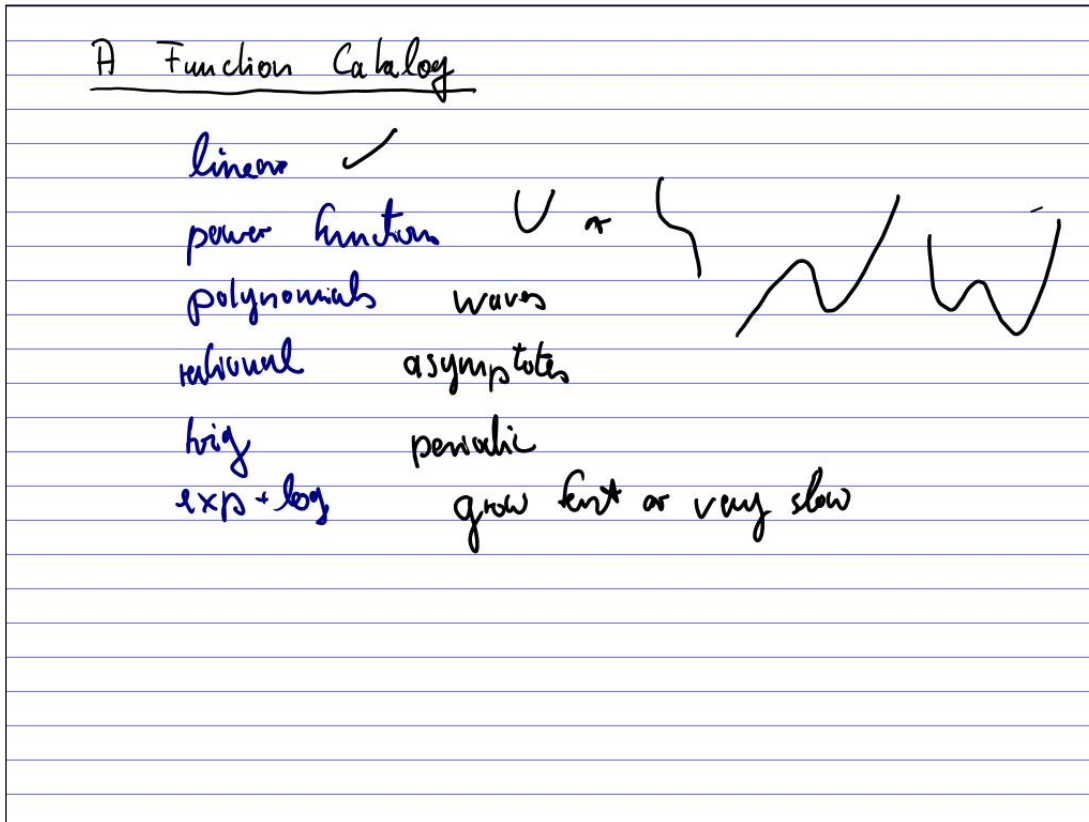 A Function Catalog
linear ✓
power functions U or
polynomials waves
rational asymptotes
trig periodic
exp + log grow fast or very slow